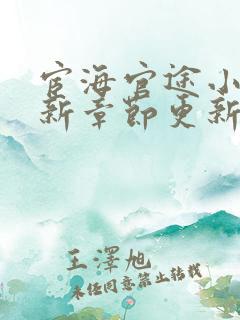 宦海官途小
新章節更新
王澤旭
未經同意禁止轉載